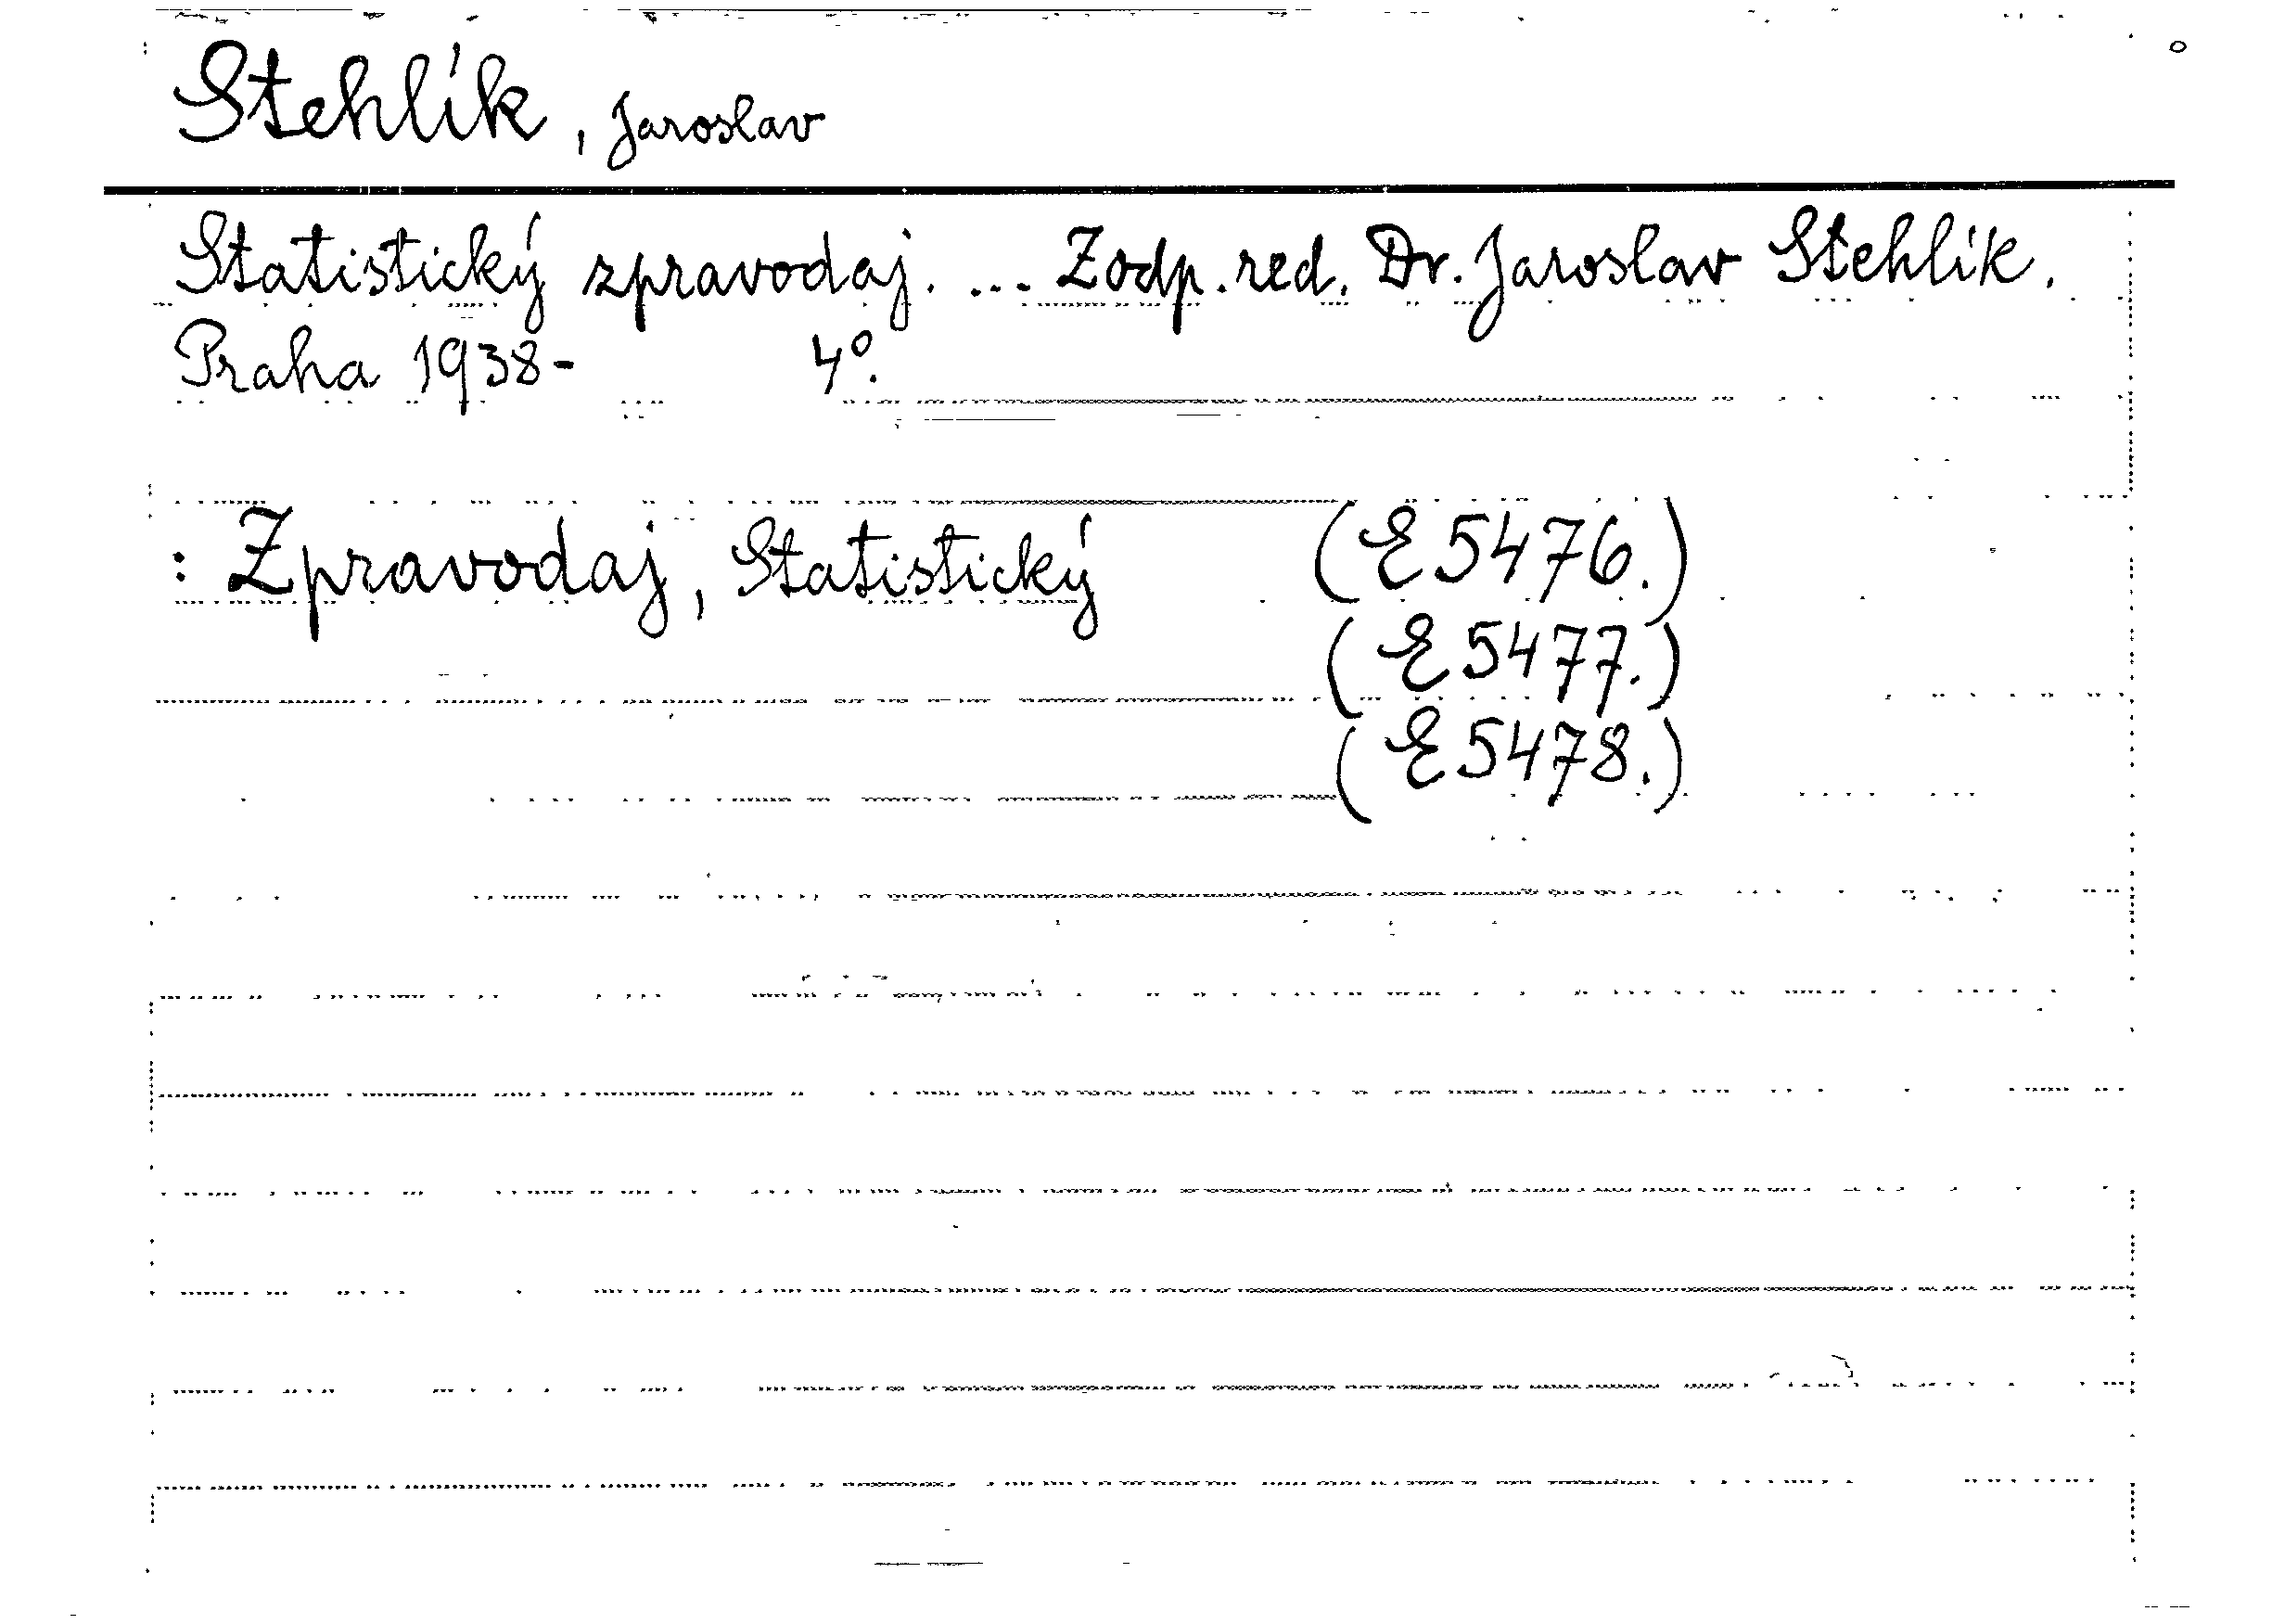 Stehlík, Jaroslav
Statistický zpravodaj. ... Zodp. red. Dr. Jaroslav Stehlík.
Praha 1938- 4°.
: Zpravodaj, Statistický (E 5476.)
(E 5477.)
(E 5478.)